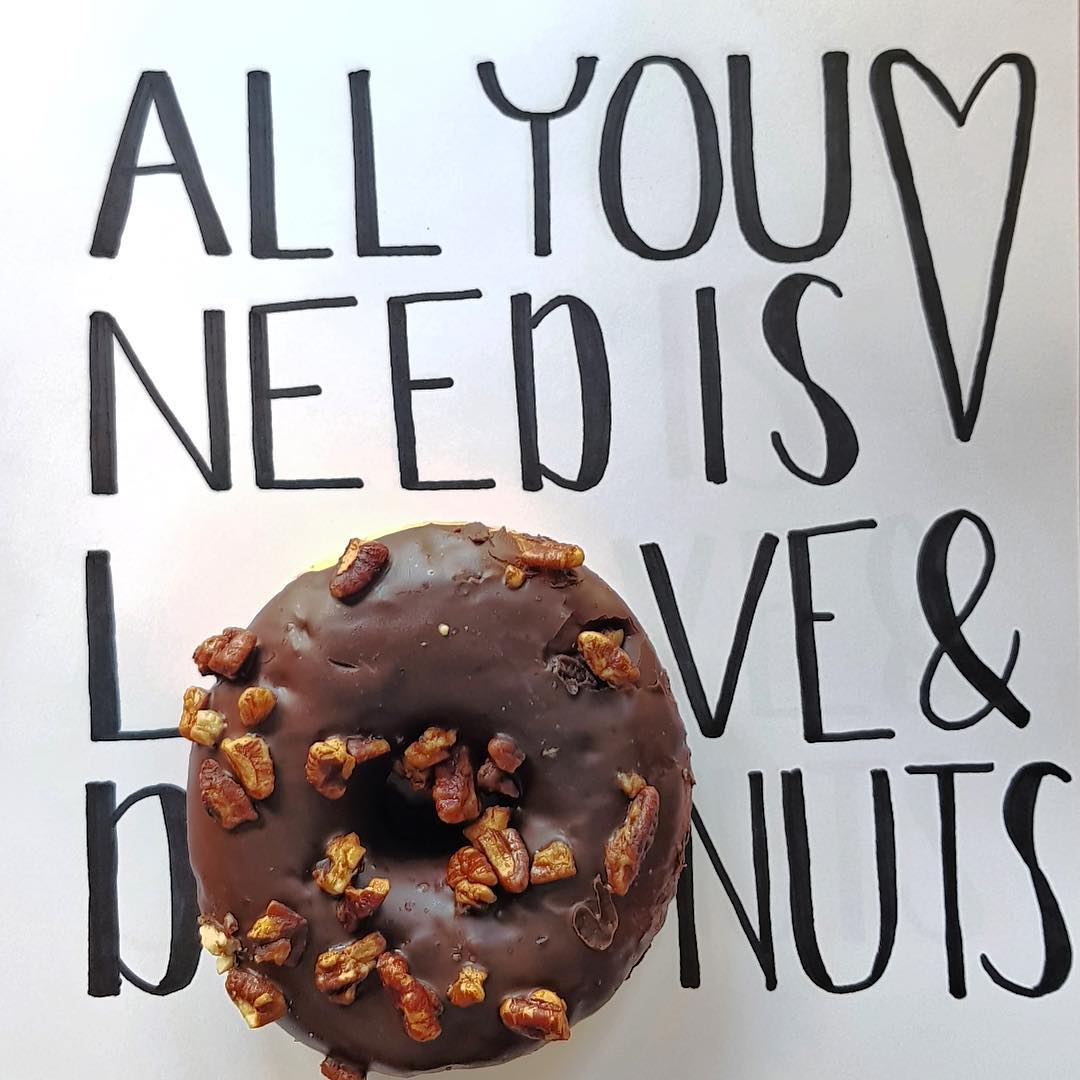 ALL YOU
NEED IS
L VE &
D NUTS